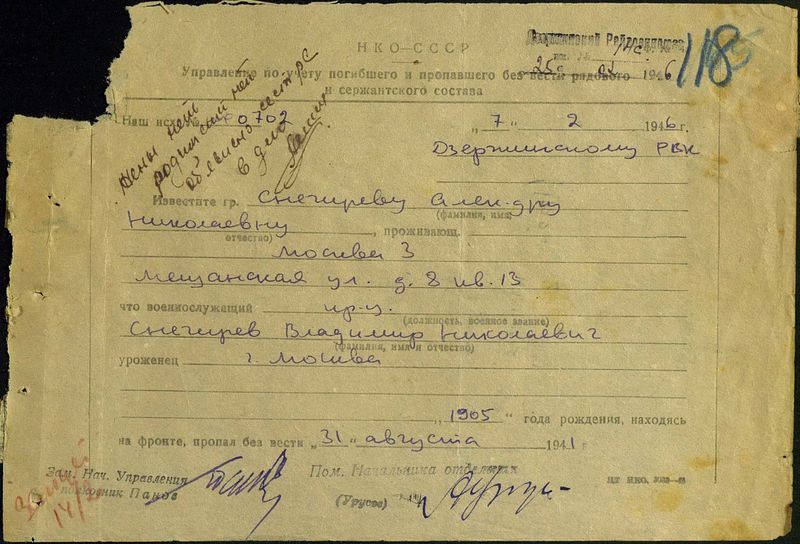 НКО—СССР
Дзержинский Райвоенкомат
118
25 1946
Управление по учету погибшего и пропавшего без вести рядового
и сержантского состава
Жены нет
родителей нет
объявлено сестре
в дело
Наш исх. № 0702
„7" 2 1946 г.
Дзержинскому РВК
Известите гр. Снегиреву Алек-дру
(фамилия, имя)
Николаевну, проживающ.
отчество)
Москва 3
Мещанская ул. д. 8 кв. 13
что военнослужащий кр-ц.
(должность, военное звание)
Снегирев Владимир Николаевич
(фамилия, имя и отчество)
уроженец г. Москва
„1905" года рождения, находясь
на фронте, пропал без вести „31" августа 1941 г.
Зам. Нач. Управления
полковник Панов
Пом. Начальника отделения
(Урусов)
14/